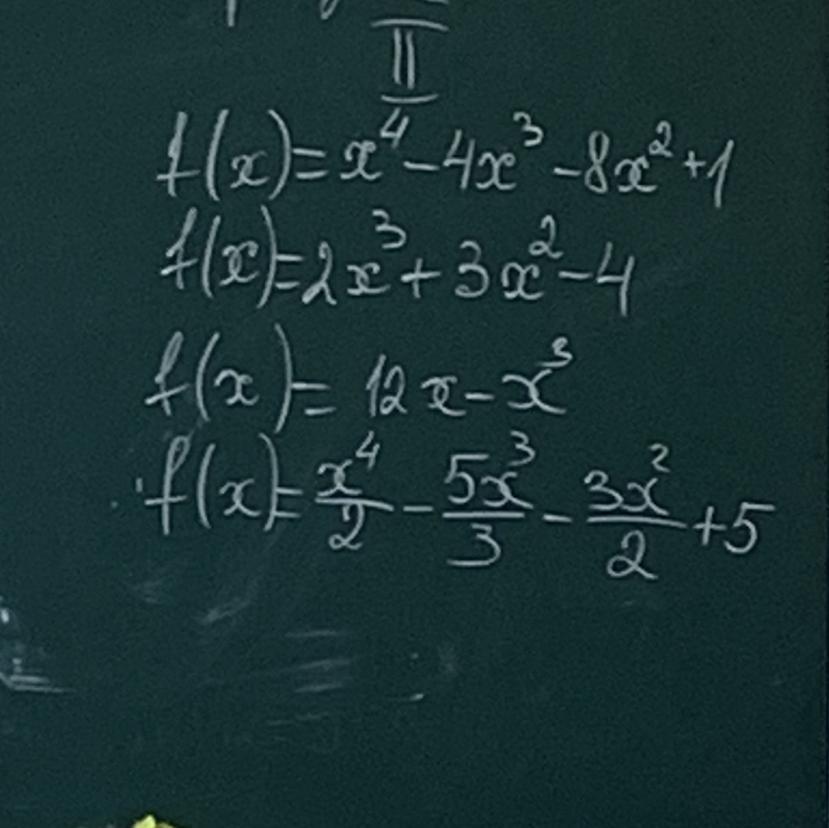 II
f(x)=x⁴-4x³-8x²+1
f(x)=2x³+3x²-4
f(x)=12x-x³
f(x)=x⁴/2-5x³/3-3x²/2+5